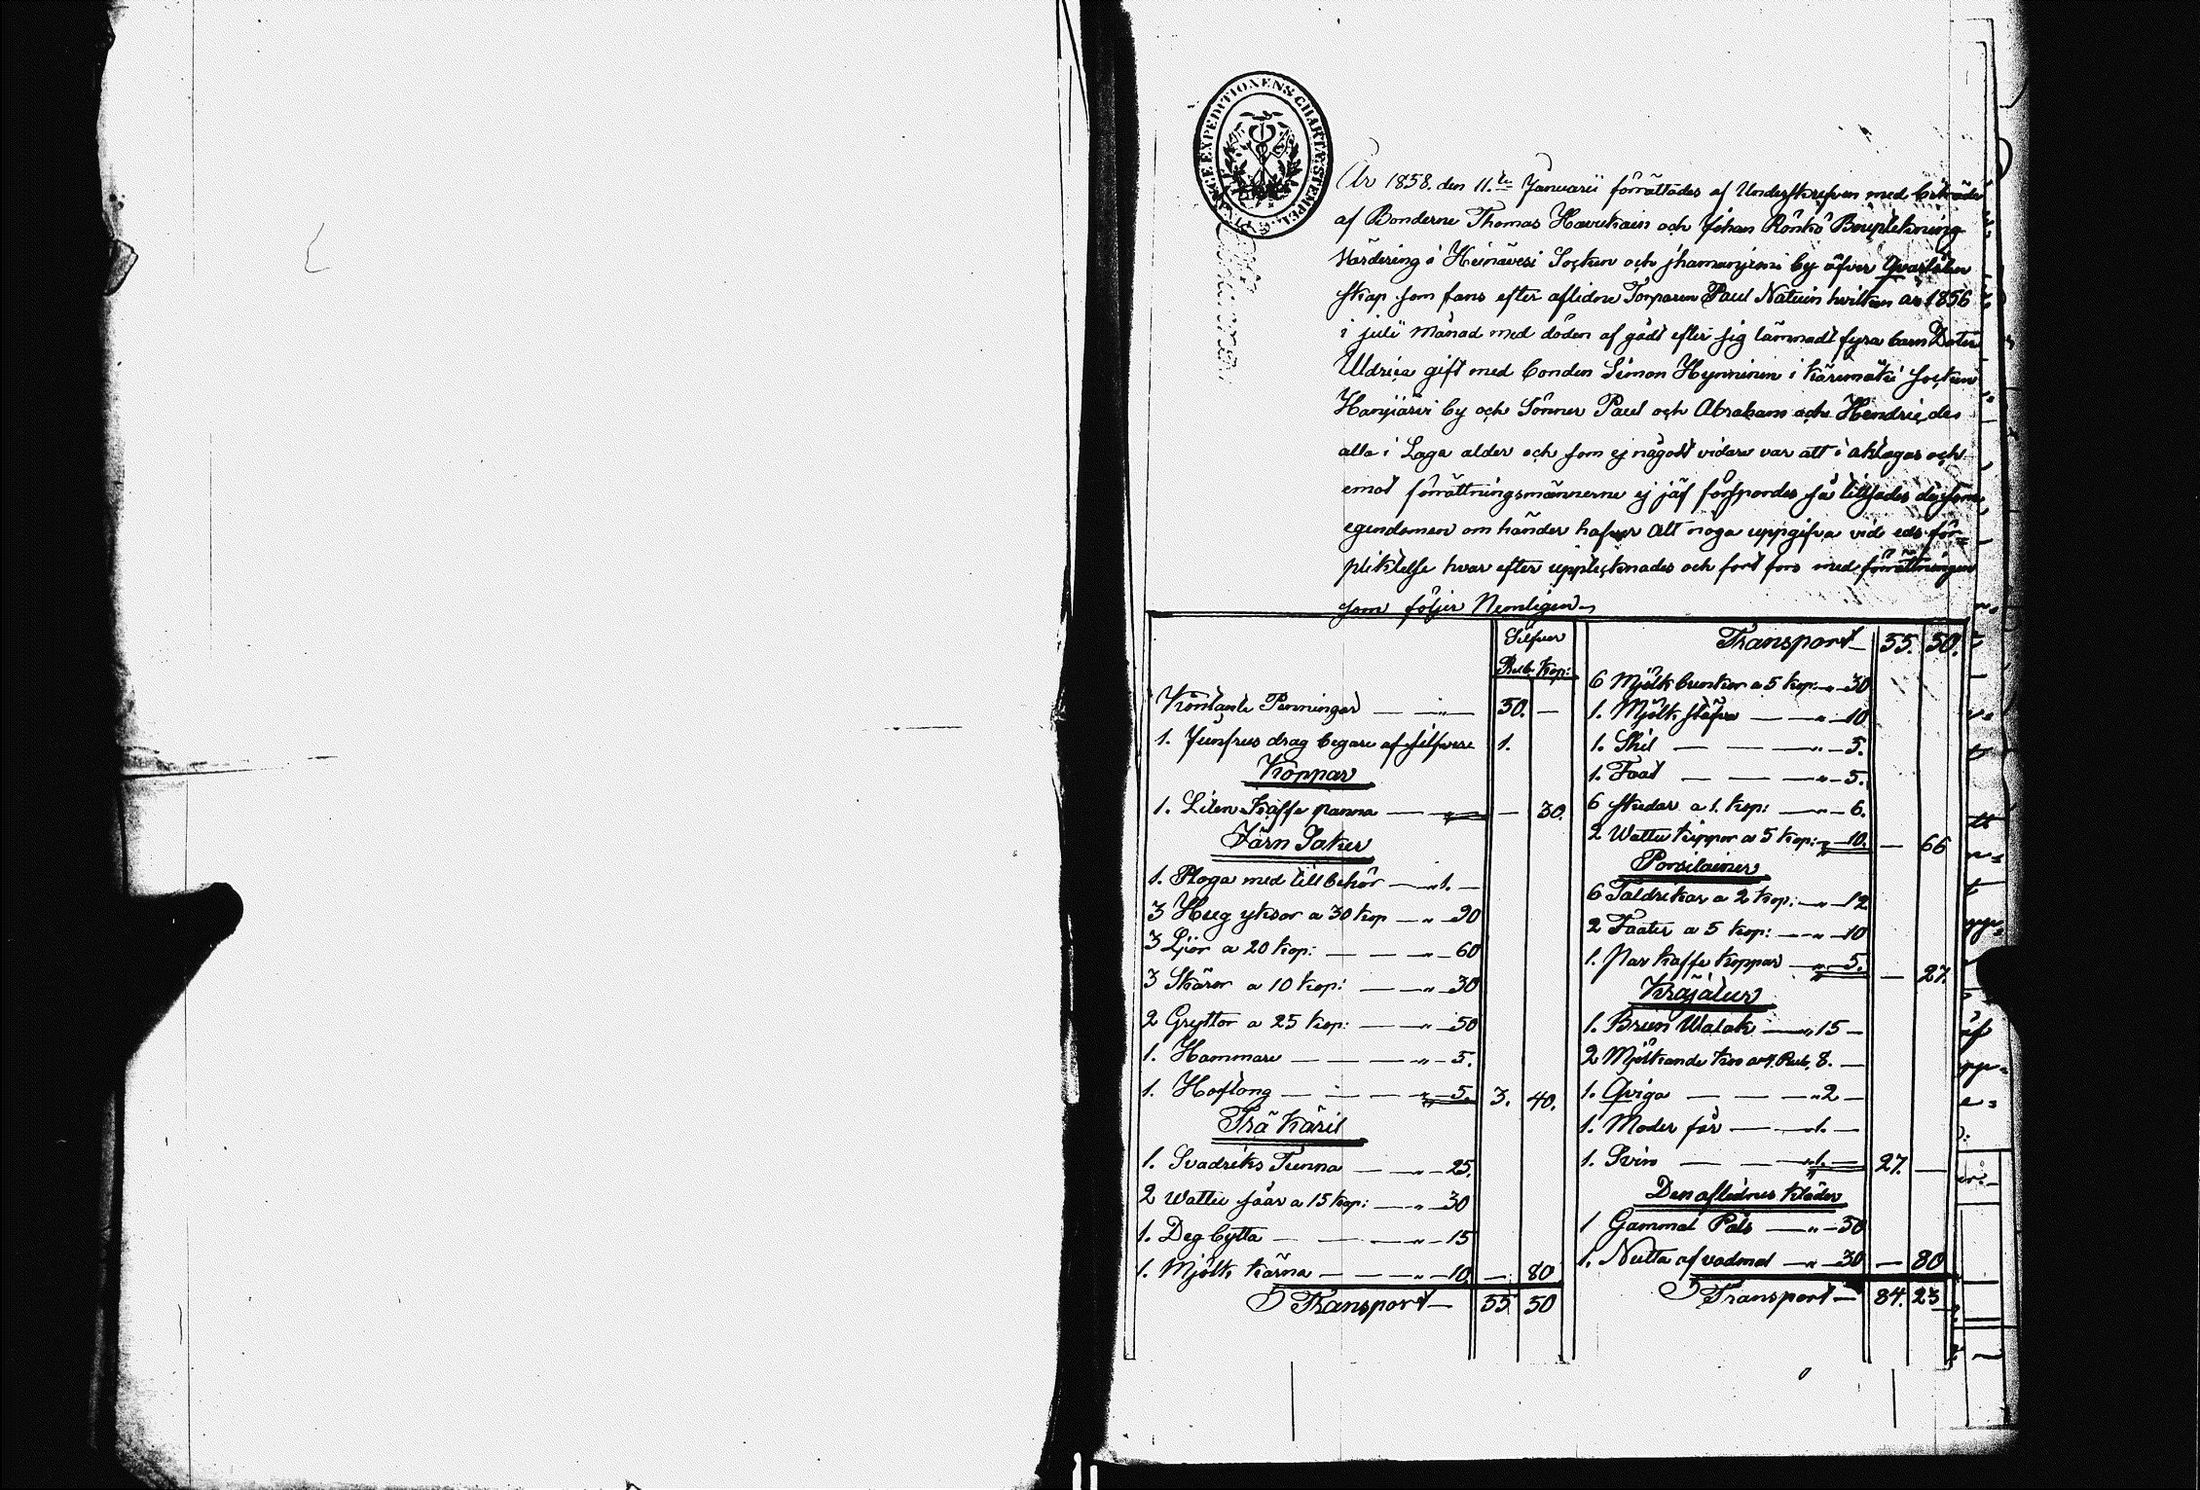 CHARGE EXPEDITIONENS CHARTÆ STEMPEL
År 1858. den 11.te Januarii förrättades af Underskrefven med biträde
af Bonderne Thomas Havukain och Johan Rönkö Bouptekning
Värdering i Heinävesi Socken och jhamanjemi by öfver Qvarlåten
skap som fans efter aflidne Torparen Paul Natuin hvilken år 1856
i julii Månad med döden af gådt efter sig lämnadt fyra barn Doter
Uldrica gift med bonden Simon Hynninen i Kärimäki Socken
Hanjiärvi by och Sönner Paul och Abraham och Hendric de
alla i Laga alder och som ej någott vidare var att i akttagas och
emot förrättningsmännerne ej jäf försporden så tillsades de som
egendomen om händer hafver Att noga uppgifva vid eds för=
pliktelse hvar efter uppteknades och fort fors med förrättningen
som följer Nemligen
Silfver
Rub. Kop:
Kontante Penningar — „ — 50. —
1. Junfrus drag begare af silfver 1.
Koppar
1. Liten Kaffe panna — „ — — 30.
Järn Saker
1. Ploga med tillbehör — „ 1. —
3 Hug yksor a 30 kop — „ — 90
3 Ljör a 20 kop: — — „ — 60
3 Skäror a 10 kop: — „ — 30
2 Gryttor a 25 kop: — „ — 50
1. Hammare — — — „ — 5.
1. Hoftong — — „ — 5. 3. 40.
Trä Käril
1. Svadriks Tunna — „ — 25.
2 Wattu såar a 15 kop: — „ — 30
1. Deg bytta — — — „ — 15
1. Mjölk kärna — — — „ — 10 — 80
Transport — 55 50
Transport — 55. 50.
6 Mjölk bunkor a 5 kop: „ — 30
1. Mjölk stäfva — — „ — 10
1. Skil — — — „ — 5.
1. Faat — — — „ — 5.
6 skedar a 1. kop: — „ — 6.
2 Wattu kippor a 5 kop: „ — 10. — 66
Porsilainer
6 Taldrikar a 2 kop: — „ — 12
2 Faater a 5 kop: — „ — 10
1. Par kaffe koppar — „ — 5. — 27.
Krajatur
1. Brun Walak — „ 15 —
2 Mjölkande kor a 4. Rub. 8. —
1. Qviga — — — „ 2 —
1. Moder får — — „ 1. —
1. Svin — — „ 1. — 27. —
Den aflidnes kläder
1 Gammal Päls — „ — 50
1. Nutta af vadmal — „ — 30 — 80
Transport — 84. 23